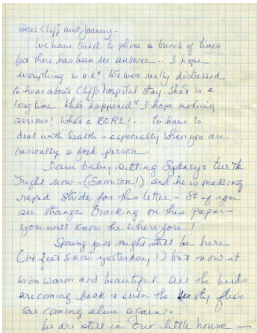 Dear Cliff and Joanny -
We have tried to phone a bunch of times
but there has been no answer... I hope
everything is o.k. We were really distressed
to hear about Cliff's hospital stay. That's a
long time. What happened? I hope nothing
serious! What a BORE! -- to have to
deal with health - especially when you are
basically a good person.
I am baby sitting Sydney's turtle
right now - (Samson!) and he is making
rapid strides for this letter - so if you
see strange tracking on this paper -
you will know the wherefore!
Spring just might still be here
(14 feet snow yesterday!) but now it
is so warm and beautiful. All the birds
are coming back & even the flies
are coming alive again.
We are still in our little house -